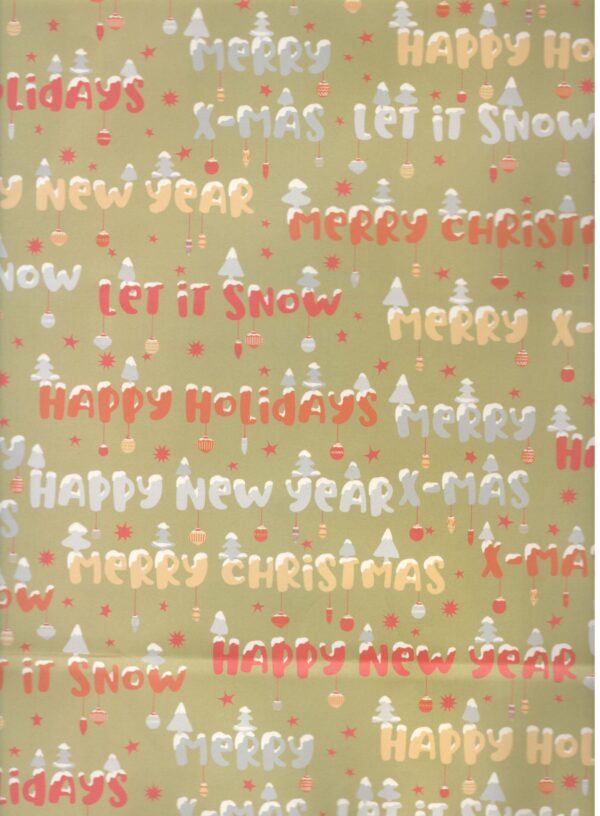 MeRRY HAPPY HO
LiDAYS
X-MAS LeT iT SNOW
Y NeW YeAR
MeRRY CHRiST
NOW
LeT iT SNOW
MeRRY X-
HAPPY HOLiDAYS
MeRRY
Y HA
HAPPY NeW YeAR X-MAS
S
MeRRY CHRiSTMAS X-MA
OW
HAPPY NeW YeAR
T iT SNOW
MeRRY HAPPY HOL
LiDAYS
X-MAS LeT iT SNOW